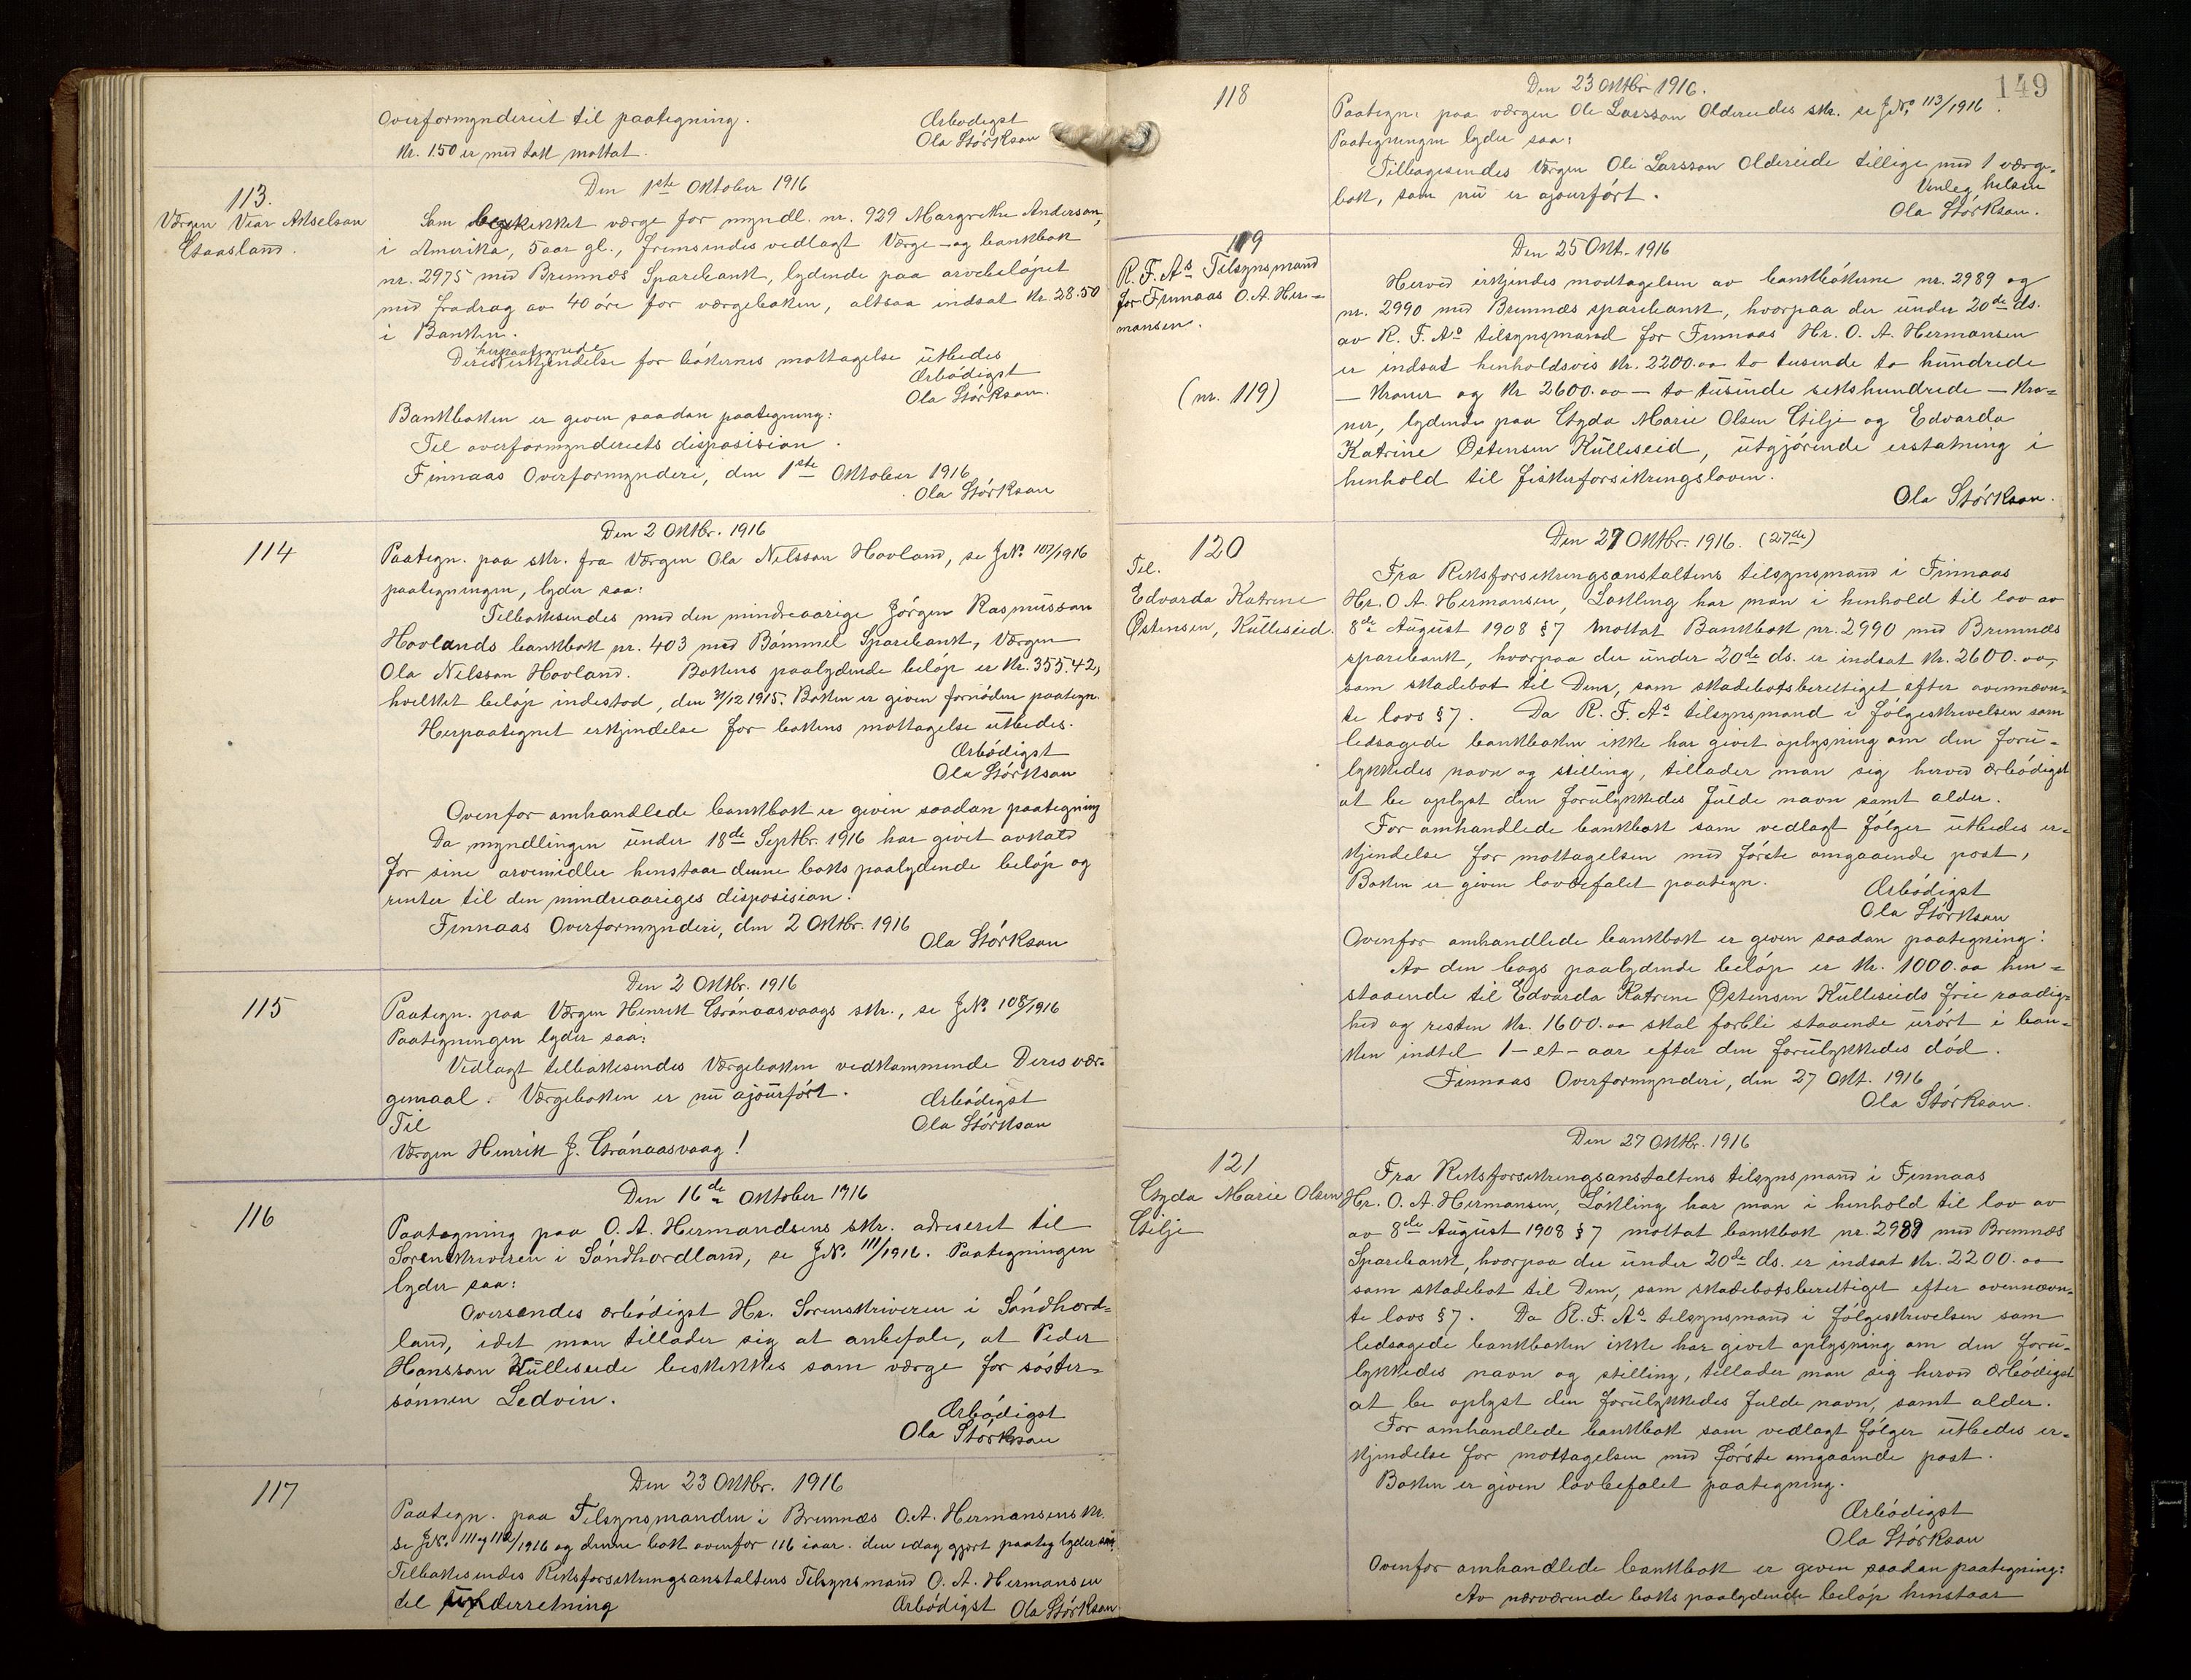 Overformynderiet til paategning.
Ærbødigst
Kr. 1.50 er med takk mottat.
Ola Størkson
113.
Værgen Vier Akselson
Gaasland.
Den 1ste Oktober 1916
Som beskikket værge for myndl. nr. 929 Margrethe Anderson,
i Amerika, 5 aar gl., fremsendes vedlagt Værge- og bankbok
nr. 2975 med Bremnes Sparebank, lydende paa arvebeløpet
med fradrag av 40 øre for værgeboken, altsaa indsat kr. 28.50
i Banken.
herpaategnede
Deres erkjendelse for bøkernes mottagelse utbedes
Ærbødigst
Ola Størkson.
Bankboken er given saadan paategning:
Til overformynderiets disposision.
Finnaas Overformynderi, den 1ste Oktober 1916
Ola Størkson
114
Den 2 Oktbr. 1916
Paategn. paa skr. fra Værgen Ola Nilsson Hovland, se J№ 107/1916
paategningen, lyder saa:
Tilbakesendes med den mindreaarige Jørgen Rasmusson
Hovlands bankbok nr. 403 med Bømmel Sparebank, Værgen
Ola Nilsson Hovland. Bokens paalydende beløp er kr. 355.42,
hvilket beløp indestod, den 31/12 1915. Boken er given fornøden paategn.
Herpaategnet erkjendelse for bokens mottagelse utbedes.
Ærbødigst
Ola Størkson
Ovenfor omhandlede bankbok er given saadan paategning
Da myndlingen under 18de Septbr. 1916 har givet avkald
for sine arvemidler henstaar denne boks paalydende beløp og
renter til den mindreaariges disposision.
Finnaas Overformynderi, den 2 Oktbr. 1916
Ola Størkson
115
Den 2 Oktbr. 1916
Paategn. paa Værgen Henrik Grønaasvaags skr., se J№ 108/1916
Paategningen lyder saa:
Vedlagt tilbakesendes Værgeboken vedkommende Deres vær-
gemaal. Værgeboken er nu ajourført.
Ærbødigst
Til
Ola Størkson
Værgen Henrik J. Grønaasvaag!
116
Den 16de Oktober 1916
Paategning paa O. A. Hermandsens skr. adreseret til
Sorenskriveren i Søndhordland, se J№ 111/1916. Paategningen
lyder saa:
Oversendes ærbødigst Hr. Sorenskriveren i Søndhord-
land, idet man tillader sig at anbefale, at Peder
Hansson Kulleseide beskikkes som værge for søster-
sønnen Ledvin.
Ærbødigst
Ola Størkson
117
Den 23 Oktbr. 1916
Paategn. paa Tilsynsmanden i Bremnes O. A. Hermansens skr.
se J№ 111 og 112/1916 og denne bok ovenfor 116 iaar. den idag gjort paateg lyder saa;
Tilbakesendes Riksforsikringsanstaltens Tilsynsmand O. A. Hermansen
til underretning
Ærbødigst Ola Størkson
149
118
Den 23 Oktbr 1916.
Paategn. paa værgen Ole Larsson Oldereides skr. se J№ 113/1916.
Paategningen lyder saa:
Tilbagesendes Værgen Ole Larsson Oldereide tillige med 1 værge-
bok, som nu er ajourført.
Venleg helsen
Ola Størkson.
119
R. F. As Tilsynsmand
for Finnaas O. A. Her-
mansen.
(nr. 119)
Den 25 Okt. 1916
Herved erkjendes modtagelsen av bankbøkerne nr. 2989 og
nr. 2990 med Bremnes sparebank, hvorpaa der under 20de ds.
av R. F. As tilsynsmand for Finnaas Hr. O. A. Hermansen
er indsat henholdsvis kr. 2200.oo to tusende to hundrede
— kroner og kr 2600.oo — to tusinde sekshundrede — kro-
ner, lydende paa Gyda Marie Olsen Gilje og Edvarda
Katrine Østensen Kulleseid, utgjørende erstatning i
henhold til fiskerforsikringsloven.
Ola Størkson.
120
Til.
Edvarda Katrine
Østensen, Kulleseid.
Den 27 Oktbr. 1916. (27de)
Fra Riksforsikringsanstaltens tilsynsmand i Finnaas
Hr. O. A. Hermansen, Løkling har man i henhold til lov av
8de August 1908 § 7 mottat Bankbok nr. 2990 med Bremnes
sparebank, hvorpaa der under 20de ds. er indsat kr. 2600.oo,
som skadebot til Dem, som skadebotsberettiget efter ovennævn-
te lovs § 7. Da R. F. As tilsynsmand i følgeskrivelsen som
ledsagede bankboken ikke har givet oplysning om den foru-
lykkedes navn og stilling, tillader man sig herved ærbødigst
at be oplyst den forulykkedes fulde navn samt alder.
For omhandlede bankbok som vedlagt følger utbedes er-
kjendelse for mottagelsen med første omgaaende post,
Boken er given lovbefalet paategn.
Ærbødigst
Ola Størkson
Ovenfor omhandlede bankbok er given saadan paategning:
Av den bogs paalydende beløp er kr. 1000.oo hen-
staaende til Edvarda Katrine Østensen Kulleseids frie raadig-
hed og resten kr. 1600.oo skal forbli staaende urørt i ban-
ken indtil 1 – et – aar efter den forulykkedes død.
Finnaas Overformynderi, den 27 Okt. 1916
Ola Størkson.
121
Gyda Marie Olsen
Gilje
Den 27 Oktbr. 1916
Fra Riksforsikringsanstaltens tilsynsmand i Finnaas
Hr. O. A. Hermansen, Løkling har man i henhold til lov av
av 8de August 1908 § 7 mottat bankbok nr. 2989 med Bremnes
Sparebank, hvorpaa der under 20de ds. er indsat kr. 2200.oo
som skadebot til Dem, som skadebotsberettiget efter ovennævn-
te lovs § 7. Da R. F. As tilsynsmand i følgeskrivelsen som
ledsagede bankboken ikke har givet oplysning om den foru-
lykkedes navn og stilling, tillader man sig herved ærbødigst
at be oplyst den forulykkedes fulde navn, samt alder.
For omhandlede bankbok som vedlagt følger utbedes er-
kjendelse for mottagelsen med første omgaaende post.
Boken er given lovbefalet paategning.
Ærbødigst
Ola Størkson
Ovenfor omhandlede bankbok er given saadan paategning:
Av nærværende boks paalydende beløp henstaar